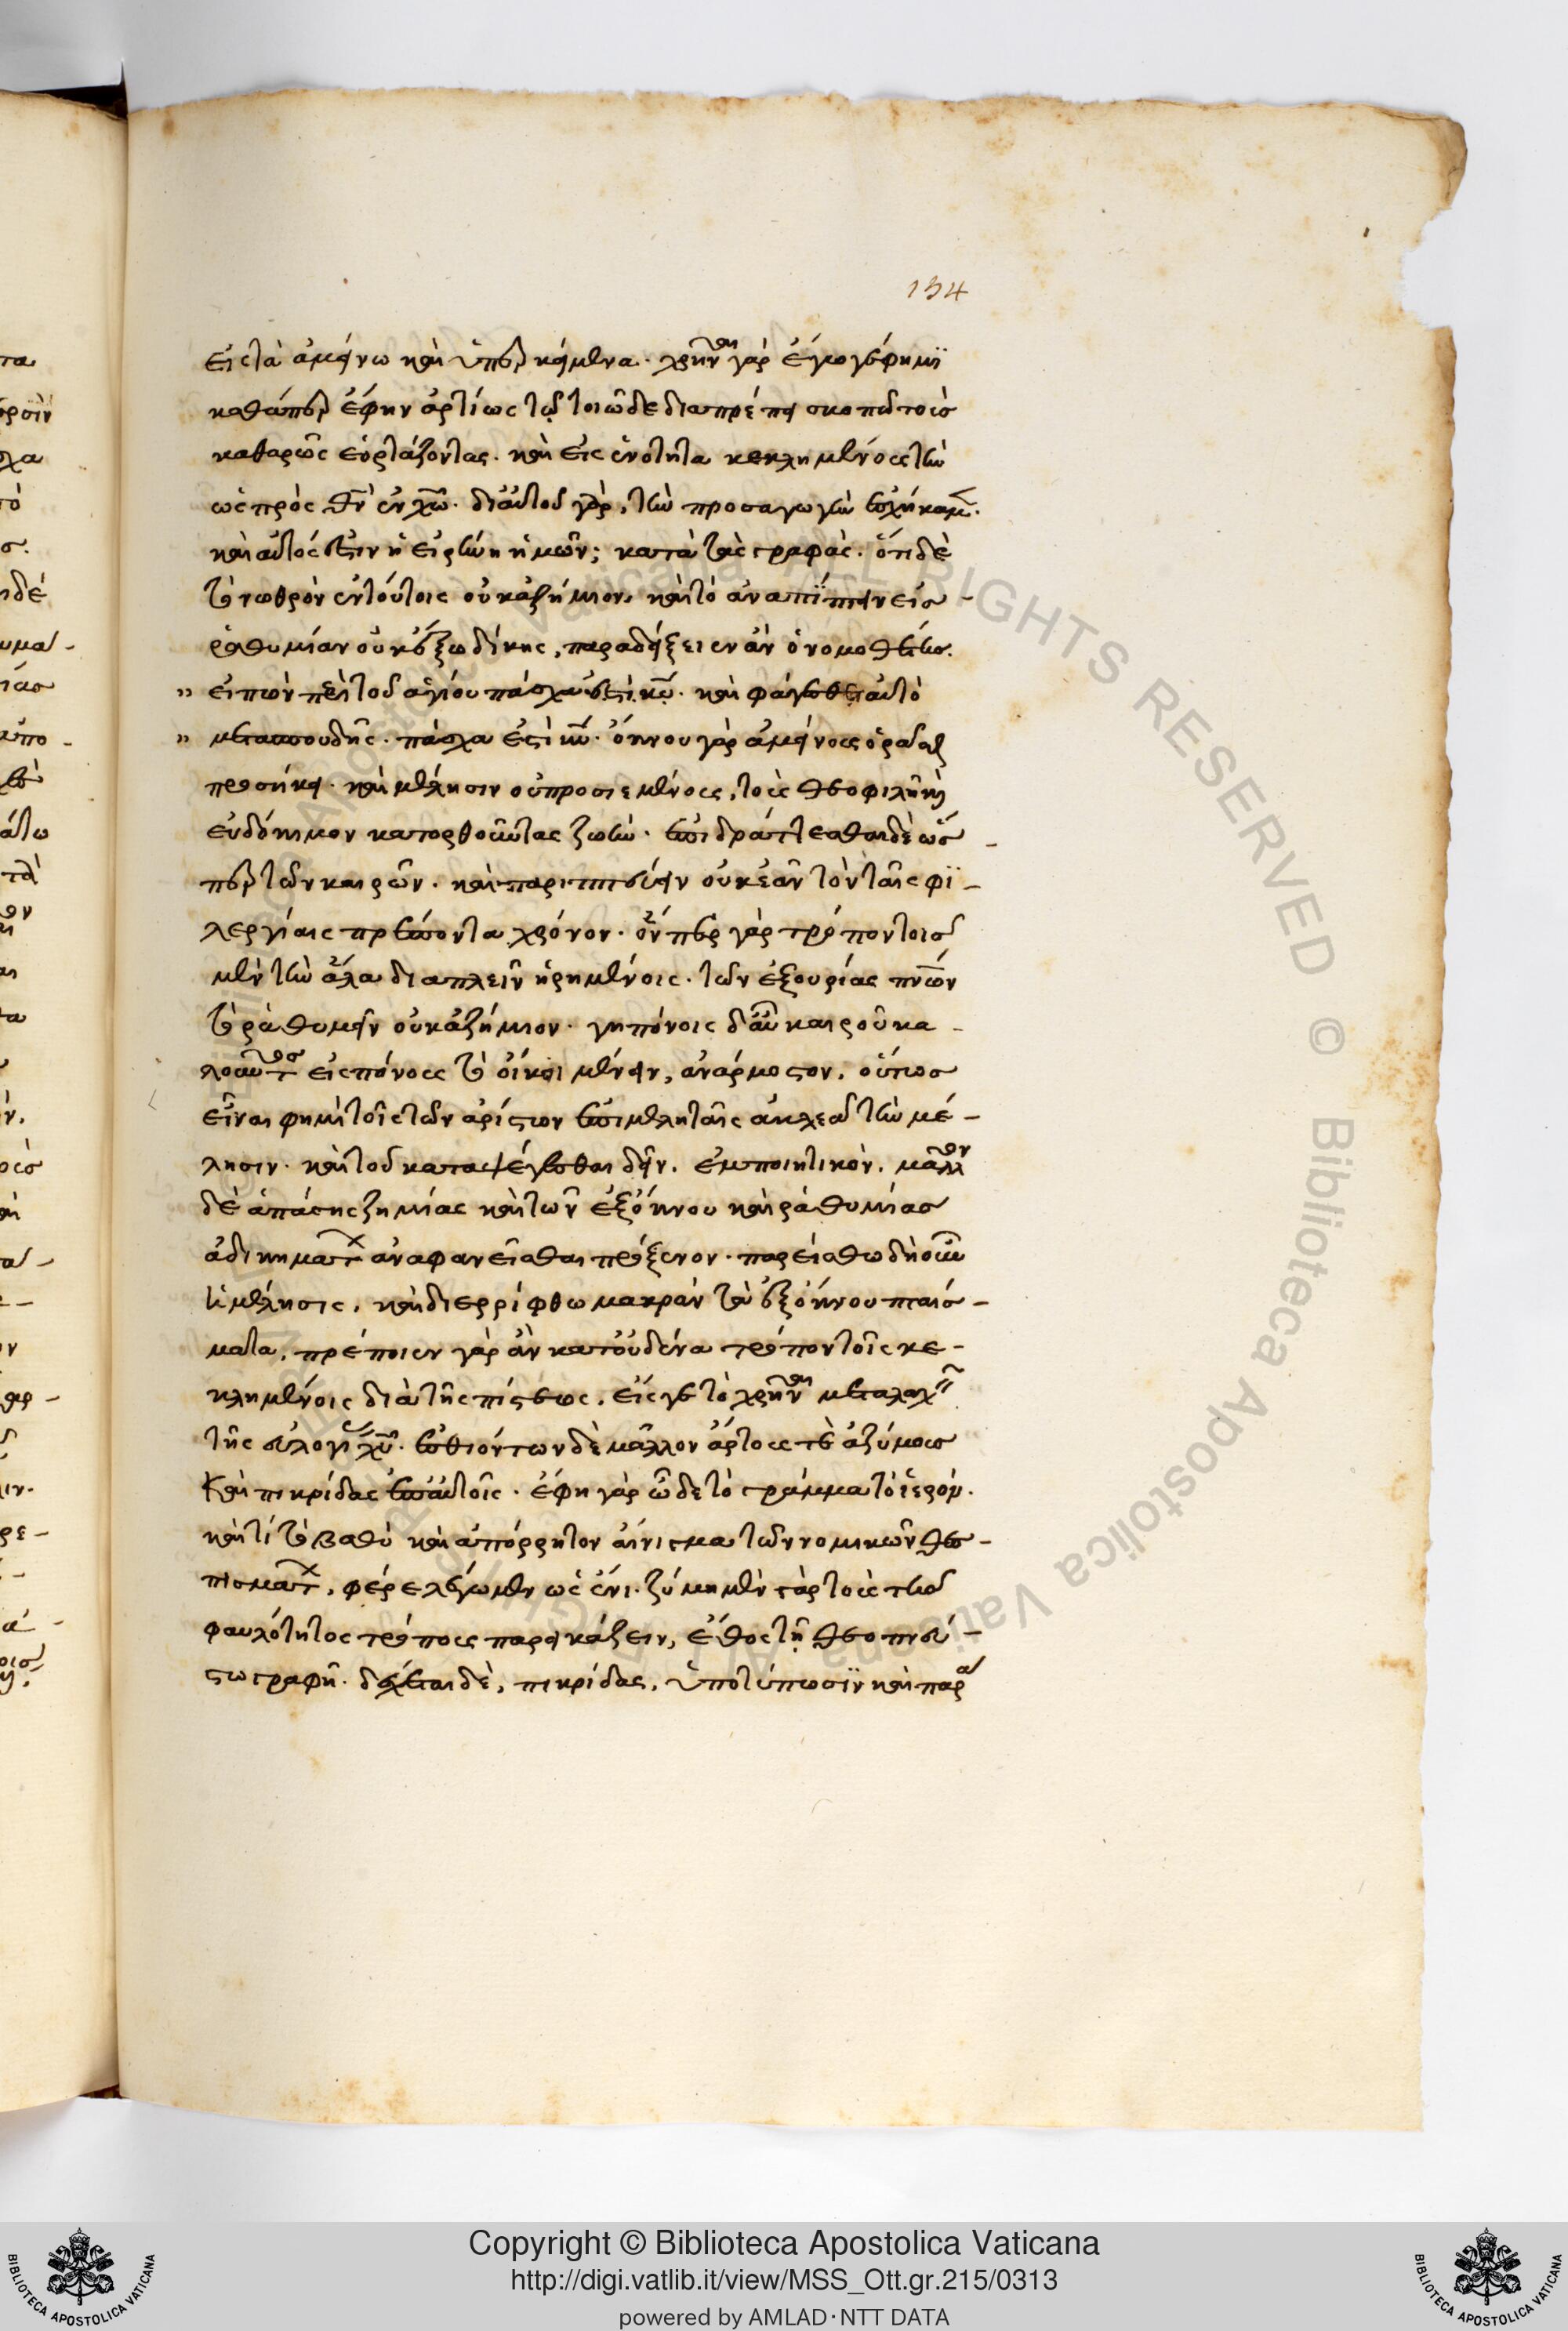 154
εἰς τὰ ἀμείνω καὶ ὑπερκείμενα. χρῆναι γὰρ ἔγωγέ φημϊ
καθάπερ ἔφην ἀρτίως τῷ τοιῷδε διαπρέπειν σκοπῷ τοὺσ
καθαρῶς ἑορτάζοντας. καὶ εἰς ἑνότητα κεκλημένους τὴν
ὡς πρὸς θ̅ν̅ ἐν χ̅ω̅. δι' αὐτοῦ γὰρ, τὴν προσαγωγὴν ἐσχήκαμεν.
καὶ αὐτός ἐστιν ἡ εἰρήνη ἡμῶν; κατὰ τὰς γραφάς. ὅτι δὲ
τὸ νωθρὸν ἐν τούτοις οὐκ ἀζήμιον, καὶ τὸ ἀναπίπτειν εἰσ -
ῥαθυμίαν οὐκ ἔξω δίκης, παραδείξειεν ἂν ὁ νομοθέτησ.
" εἰπὼν περὶ τοῦ ἁγίου πάσχα ἐστὶ κ̅υ̅. καὶ φάγεσθε αὐτὸ
" μετὰ σπουδῆς. πάσχα ἐστὶ κ̅ω̅. ὄκνου γὰρ ἀμείνους ὁρᾶσθαι
προσήκει. καὶ μέλλησιν οὐ προσιεμένους, τοὺς θεοφιλῆ καὶ
εὐδόκιμον κατορθοῦντας ζωήν. ἐπιδράττεσθαι δὲ ὥσ -
περ τῶν καιρῶν. καὶ παριππεύειν οὐκ ἐᾶν τὸν ταῖς φϊ -
λεργίαις πρέποντα χρόνον. ὅνπερ γὰρ τρόπον τοῖσ
μὲν τὴν ἅλα διαπλεῖν ᾑρημένοις. τῶν ἐξ οὐρίας πνεόντων
τὸ ῥαθυμεῖν οὐκ ἀζήμιον. γηπόνοις δ' αὖ καιροῦ κα -
λοῦντος εἰς πόνους τὸ οἴκοι μένειν, ἀνάρμοστον. οὕτωσ
εἶναι φημὶ τοῖς τῶν ἀρίστων ἐπιμεληταῖς ἀκλεᾶ τὴν μέ -
λησιν. καὶ τοῦ καταψέγεσθαι δεῖν. ἐμποιητικὸν. μᾶλλον
δὲ ἁπάσης ζημίας καὶ τῶν ἐξ ὄκνου καὶ ῥαθυμίασ
ἀδικημάτων ἀναφανεῖσθαι πρόξενον. παρείσθω δὴ οὖν
ἡ μέλλησις, καὶ διερρίφθω μακρὰν τὰ ἐξ ὄκνου πταίσ -
ματα, πρέποιεν γὰρ ἂν κατ' οὐδένα τρόπον τοῖς κε -
κλημένοις διὰ τῆς πίστεως, εἴς γε τὸ χρῆναι μεταλαχεῖν
τῆς εὐλογίας χ̅υ̅. ἐσθιόντων δὲ μᾶλλον ἄρτους τε ἀζύμουσ
καὶ πικρίδας ἐπ' αὐτοῖς. ἔφη γὰρ ὧδε τὸ γράμμα τὸ ἱερόν.
καὶ τί τὸ βαθὺ καὶ ἀπόρρητον αἴνιγμα τῶν νομικῶν θεσ -
πισμάτων, φέρε λέγωμεν ὡς ἔνι. ζύμη μὲν γὰρ τοὺς τῆσ
φαυλότητος τρόπους παρεικάζειν, ἔθος τῇ θεοπνεύ -
στω γραφῇ. δέχεται δὲ, πικρίδας, ὑποτύπωσϊν καὶ παρα
Copyright © Biblioteca Apostolica Vaticana
http://digi.vatlib.it/view/MSS_Ott.gr.215/0313
powered by AMLAD · NTT DATA